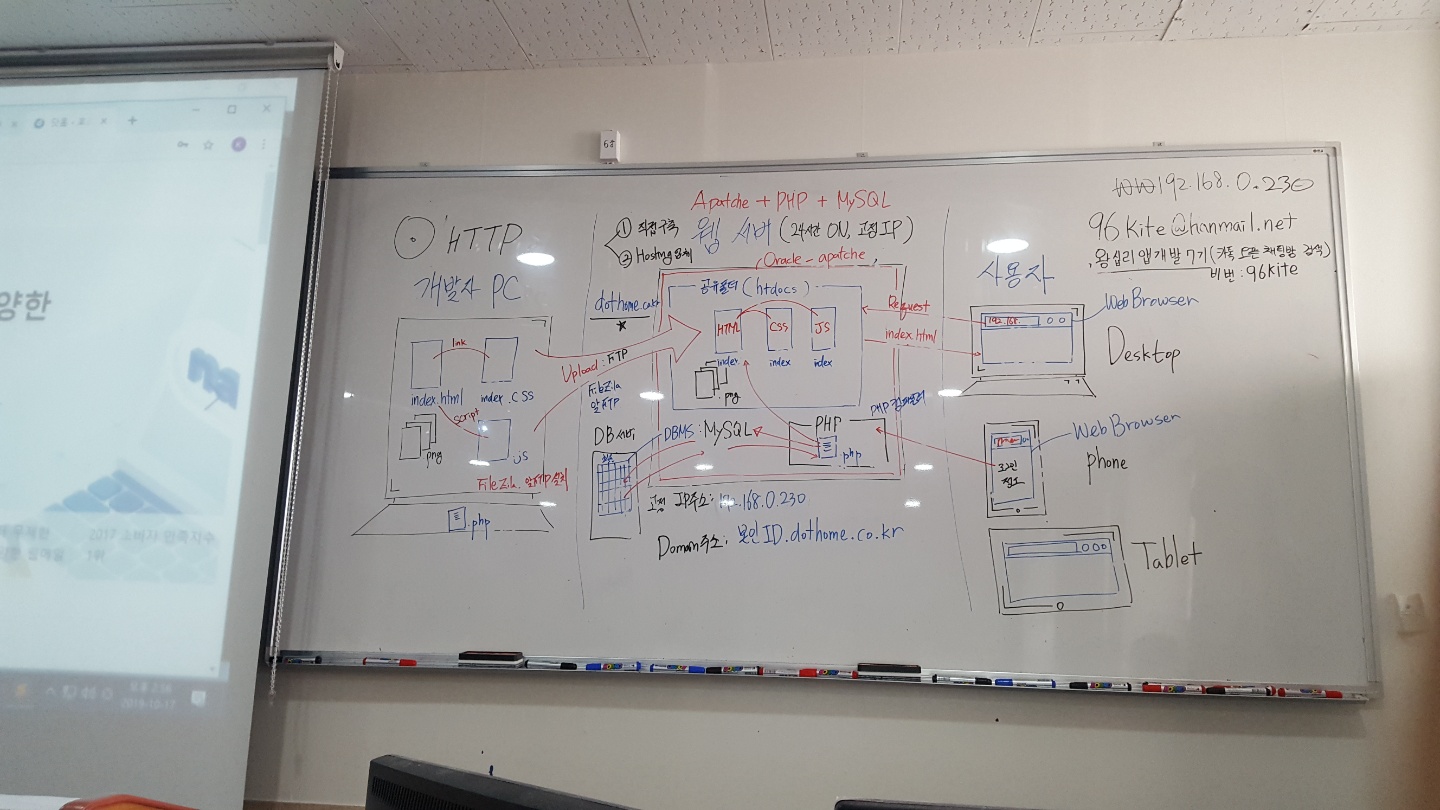 양한
2017 소비자 만족지수
1위
2019-12-17
6강
HTTP
개발자 PC
link
index.html
index.css
script
png
JS
FileZila. 알FTP 설치
.php
Apatche + PHP + MySQL
① 직접구축
② Hosting 업체
웹 서버 (24시간 ON, 고정 IP)
Oracle - apatche
dothome.co.kr
★
공유폴더 (htdocs)
HTML
CSS
JS
index
index
index
.png
Upload : FTP
FileZila
알FTP
DB서버
DBMS : MySQL
PHP
.php
고정 IP주소 : 192.168.0.230
Domain주소 : 본인ID.dothome.co.kr
Request
index.html
WW192.168.0.230
96kite@hanmail.net
왕십리앱개발7기(카톡 오픈 채팅방 검색)
비번 : 96kite
사용자
192.168.
WebBrowser
Desktop
WebBrowser
phone
Tablet